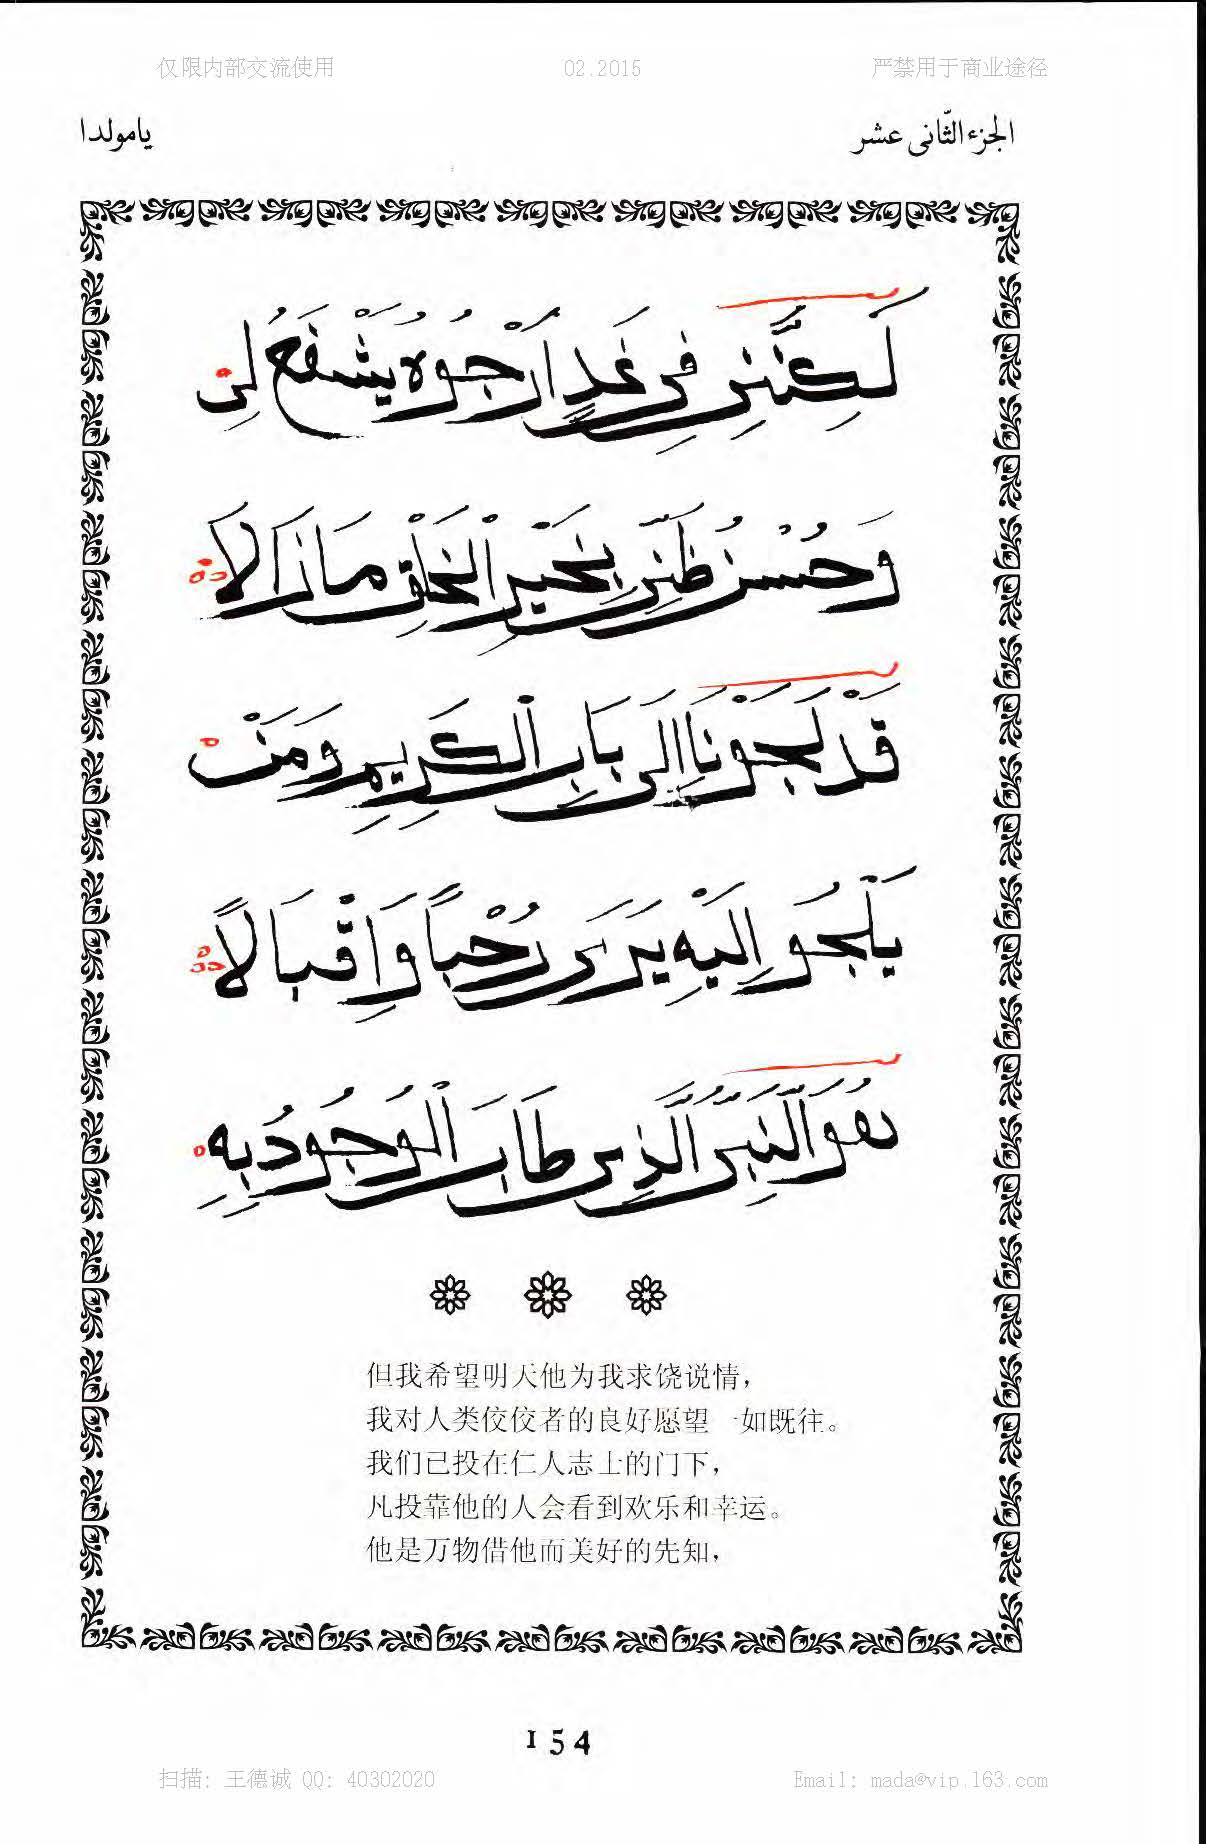 仅限内部交流使用 02.2015 严禁用于商业途径
الجزء الثّانى عشر يامولدا
لَكِنَّنِى فِى غَدٍ اَرْجُوهُ يَشْفَعُ لِى
وَحُسْنُ ظَنِّى بِخَيْرِ الْخَلْقِ مَا زَالَا
قَدْ لَجَوْنَا اِلَى بَابِ الْكَرِيمِ وَمَنْ
يَلْجَو اِلَيْهِ يَرَى رُحْبًا وَاِقْبَالًا
هُوَ النَّبِىُّ الَّذِى طَابَ الْوُجُودُ بِهِ
但我希望明天他为我求饶说情，
我对人类佼佼者的良好愿望一如既往。
我们已投在仁人志士的门下，
凡投靠他的人会看到欢乐和幸运。
他是万物借他而美好的先知，
154
扫描: 王德诚 QQ: 40302020 Email: mada@vip.163.com